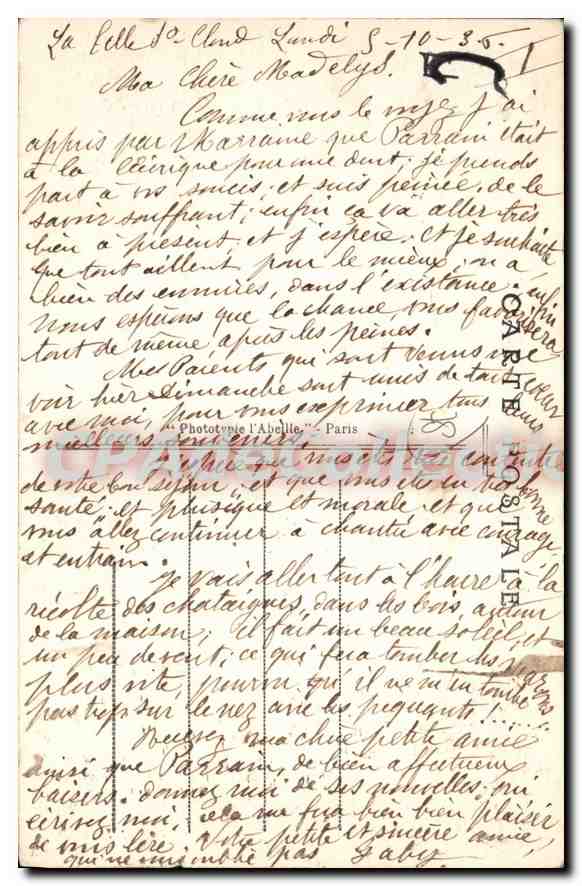 La Celle St-Cloud Lundi 5-10-36
Ma Chère Madelys.
Comme vous le voyez j'ai
appris par Marraine que Parrain était
à la Clinique pour une dent; je prends
part à vos soucis, et suis peinée de le
savoir souffrant; enfin ça va aller très
bien à présent, et j'espère. et je souhaite
que tout aillent pour le mieux; on a
bien des ennuies, dans l'existance. enfin
nous espérons que la chance vous favorisera
tout de même après les peines.
Mes Parents qui sont venus me
voir hier Dimanche sont unis de tout cœur
avec moi, pour vous exprimer tous nos
meilleurs souvenirs.
"Phototypie l'Abeille" - Paris
CARTE POSTALE
CPA Collection
que vous êtes contente
de votre bon séjour, et que vous êtes en bonne
santé; et physique et morale, et que
vous allez continuer à chanter avec courage
et entrain.
Je vais aller tout à l'heure à la
récolte des chataignes, dans les bois, autour
de la maison; il fait un beau soleil, et
un peu de vent, ce qui fera tomber les
plus vite, pourvu qu'il ne m'en tombe
pas trop sur le nez avec les piquants!......
Recevez ma chère petite amie
ainsi que Parrain, de bien affectueux
baisers. donnez moi de ses nouvelles; oui
écrivez moi, cela me fera bien bien plaisir
de vous lire. Votre petite et sincère amie,
qui ne vous oublie pas Gaby